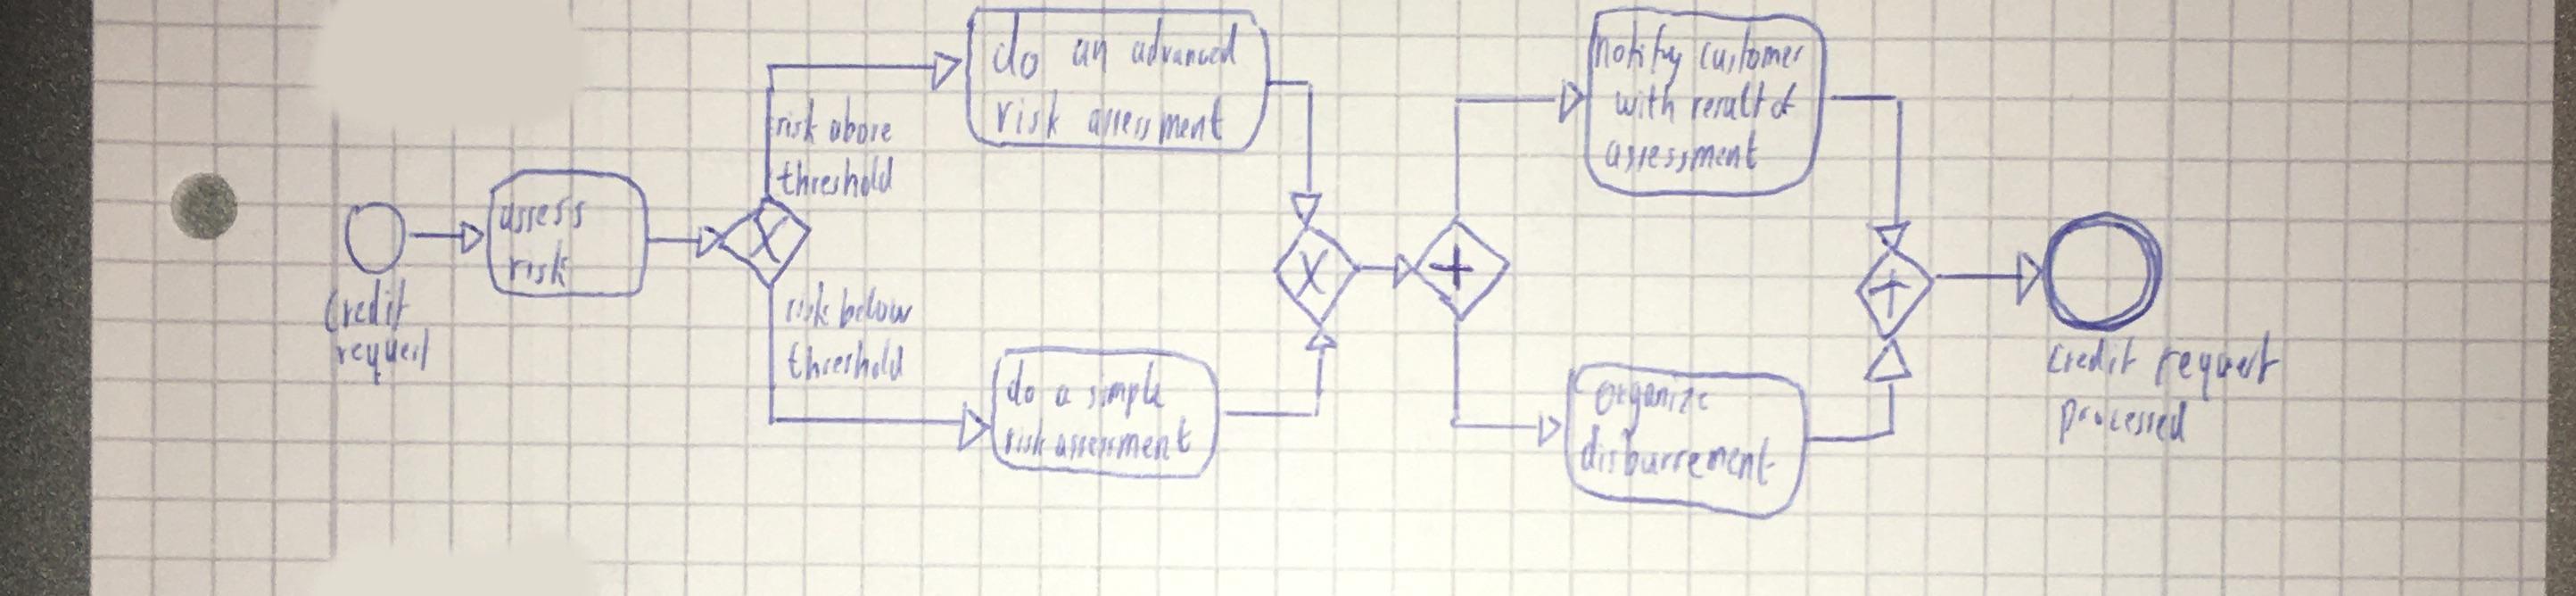 Credit
request
assess
risk
X
risk above
threshold
risk below
threshold
do an advanced
risk assessment
do a simple
risk assessment
X
+
notify customer
with result of
assessment
organize
disbursement
+
credit request
processed